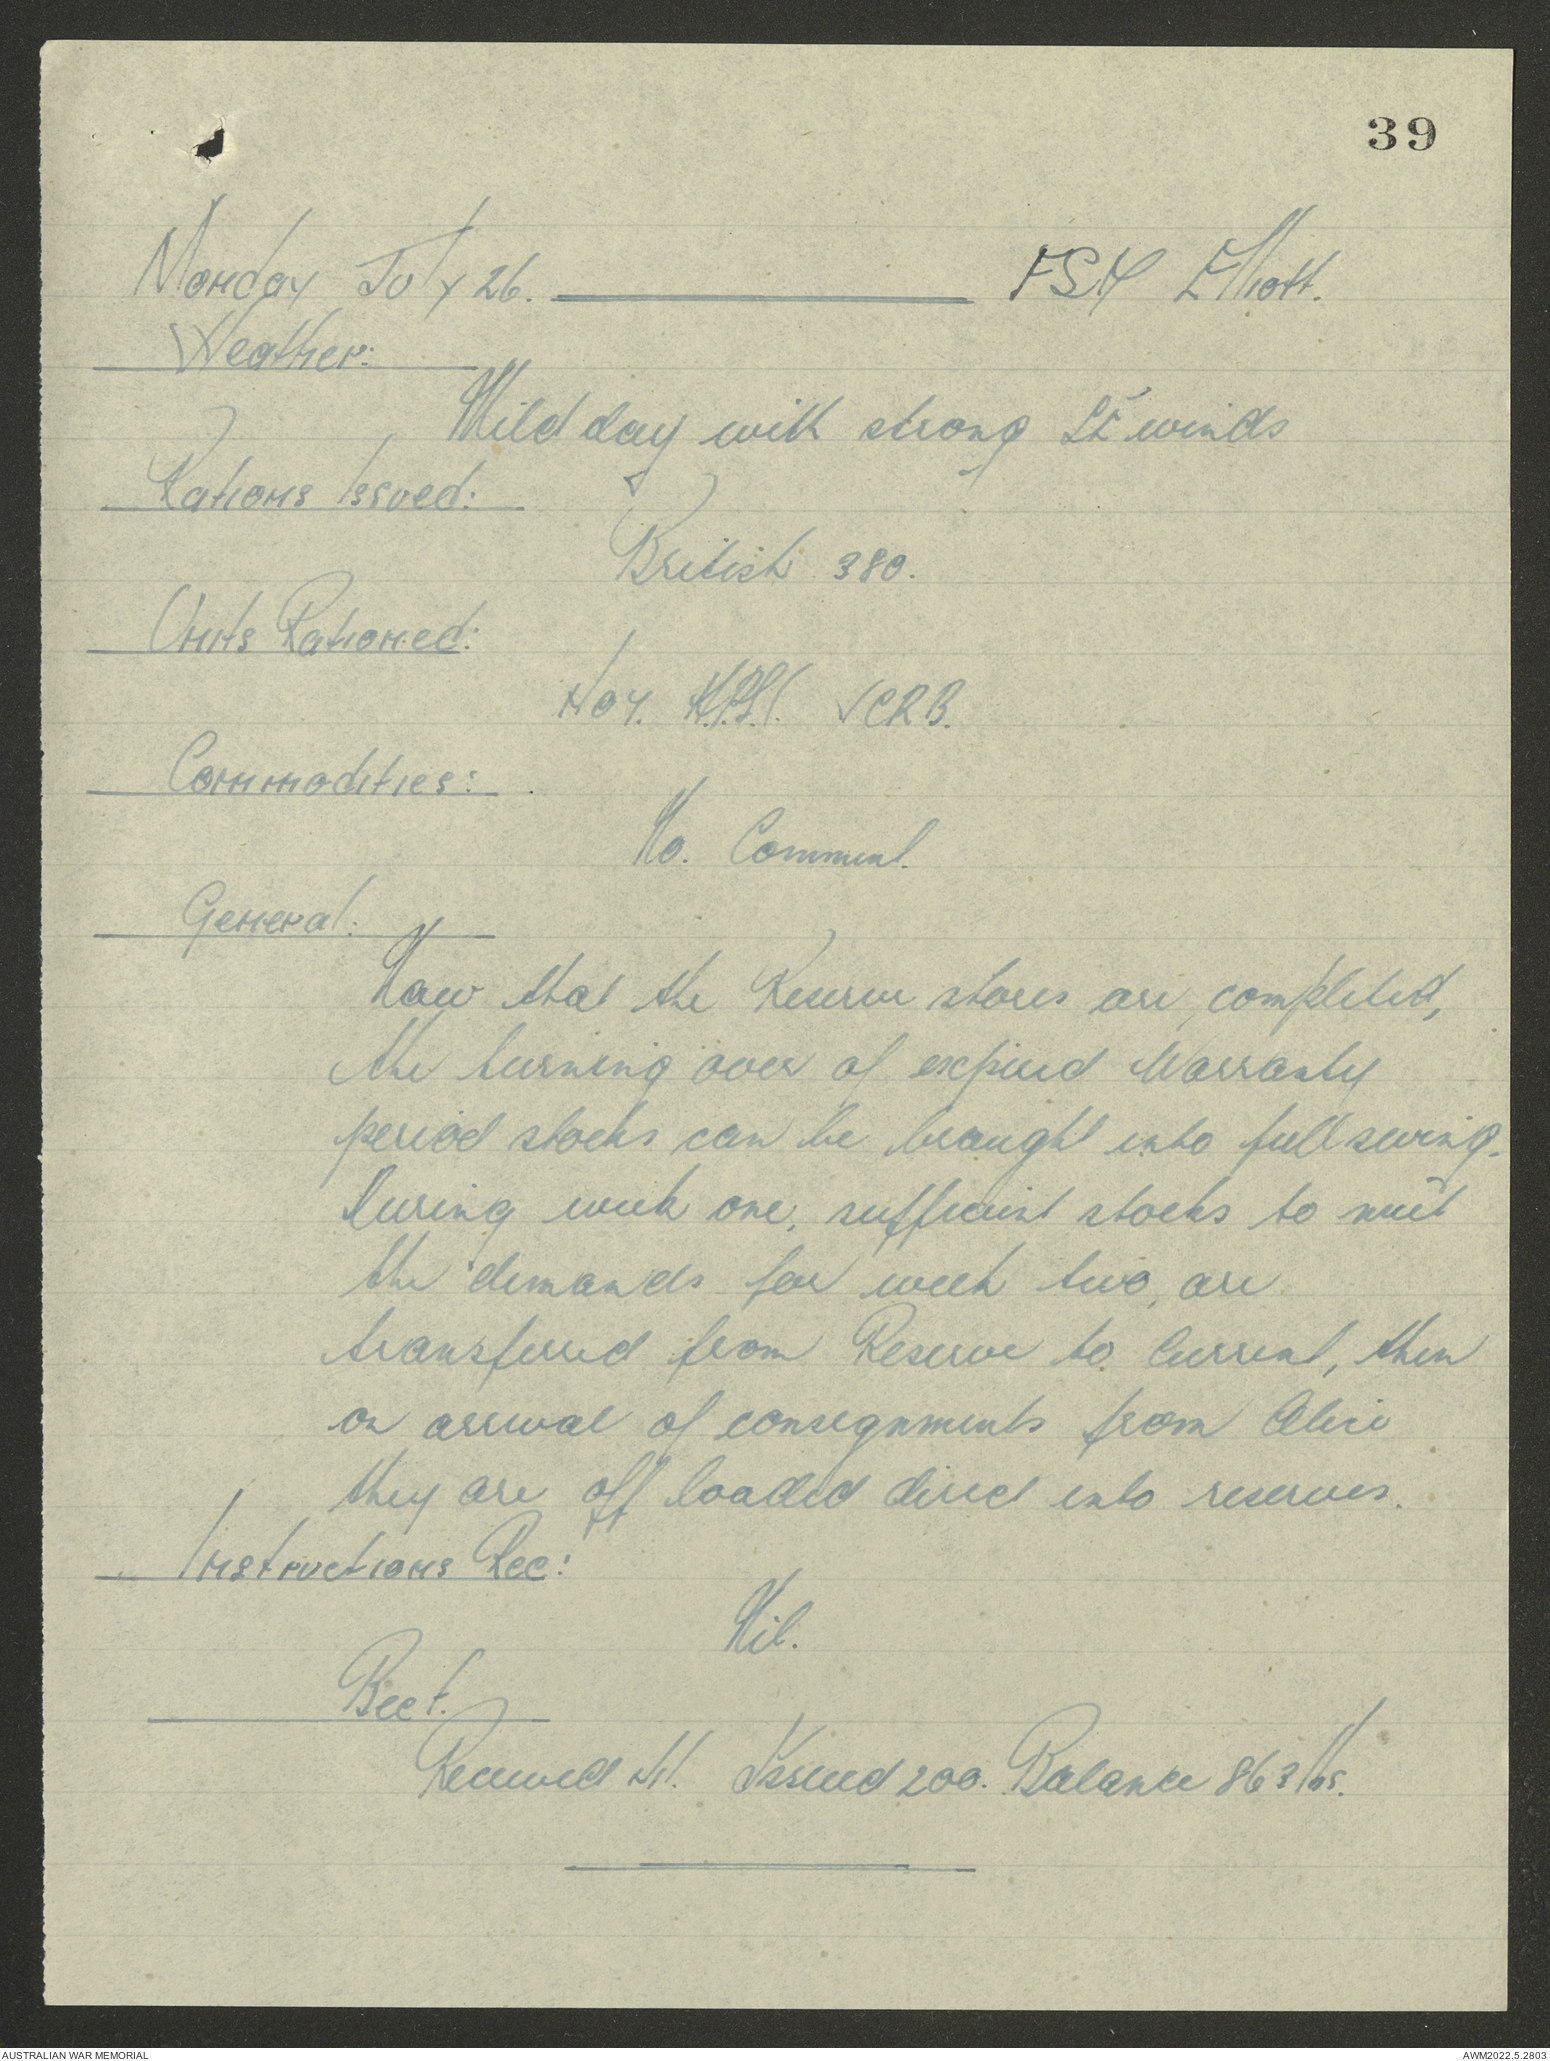 39
Monday July 26. FSD Elliott.
Weather:
Mild day with strong SE winds
Rations Issued:
British 380.
Units Rationed:
No 4.
Commodities:
No. Comment.
General:
Now that the Reserve stores are completed,
the turning over of expired Warranty
period stocks can be brought into full swing.
During week one, sufficient stocks to meet
the demands for week two, are
transferred from Reserve to Current, then
on arrival of consignments from Alice
they are off loaded direct into reserves.
Instructions Rec:
Nil.
Beef.
Received Nil. Issued 200. Balance 863 lbs.
AUSTRALIAN WAR MEMORIAL
AWM2022.5.2803